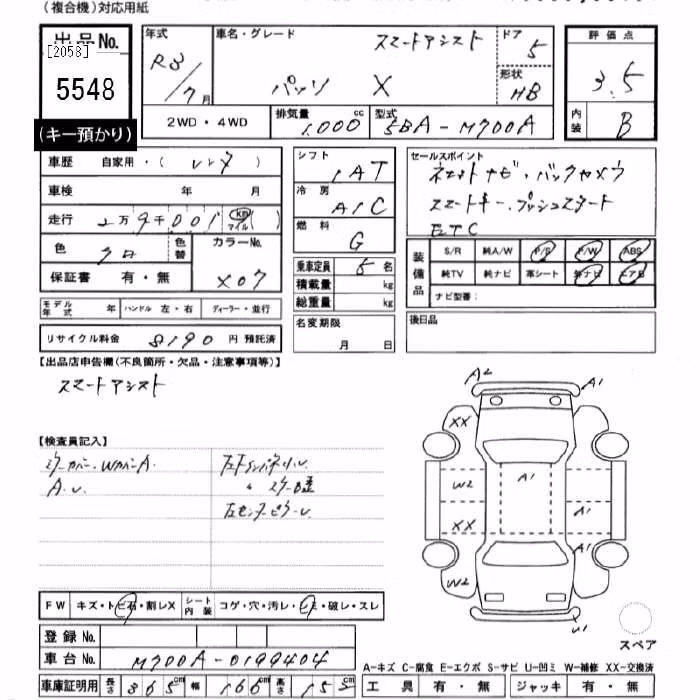 (複合機)対応用紙
出品No.
[2058]
5548
(キー預かり)
年式
R3/7月
車名・グレード
スマートアシスト
パッソ X
ドア
5
形状
HB
評価点
3.5
内装
B
2WD・4WD
排気量
1,000cc
型式
5BA-M700A
車歴 自家用・(レンタ)
車検 年 月
走行 2万9千001 km マイル ( )
色 クロ 色替 カラーNo.
X07
保証書 有・無
モデル年式 年 ハンドル 左・右 ディーラー・並行
リサイクル料金 8190 円 預託済
シフト
IAT
冷房
A/C
燃料
G
乗車定員 5 名
積載量 kg
総重量 kg
名変期限
月 日
セールスポイント
ナビ・バックカメラ
スマートキー・プッシュスタート
ETC
装備品
S/R 純A/W P/S P/W ABS
純TV 純ナビ 革シート エアB
ナビ型番:
後日品
【出品店申告欄(不良箇所・欠品・注意事項等)】
スマートアシスト
【検査員記入】
A2 A1
XX
W2 A1
XX A1
A1
W2
U1
スペア
FW キズ・トビ石・割レX シート内装 コゲ・穴・汚レ・シミ・破レ・スレ
登録No.
車台No. M700A-0199404
車庫証明用 長さ 365cm 幅 166cm 高さ 152cm
A-キズ C-腐食 E-エクボ S-サビ U-凹ミ W-補修 XX-交換済
工具 有・無 ジャッキ 有・無